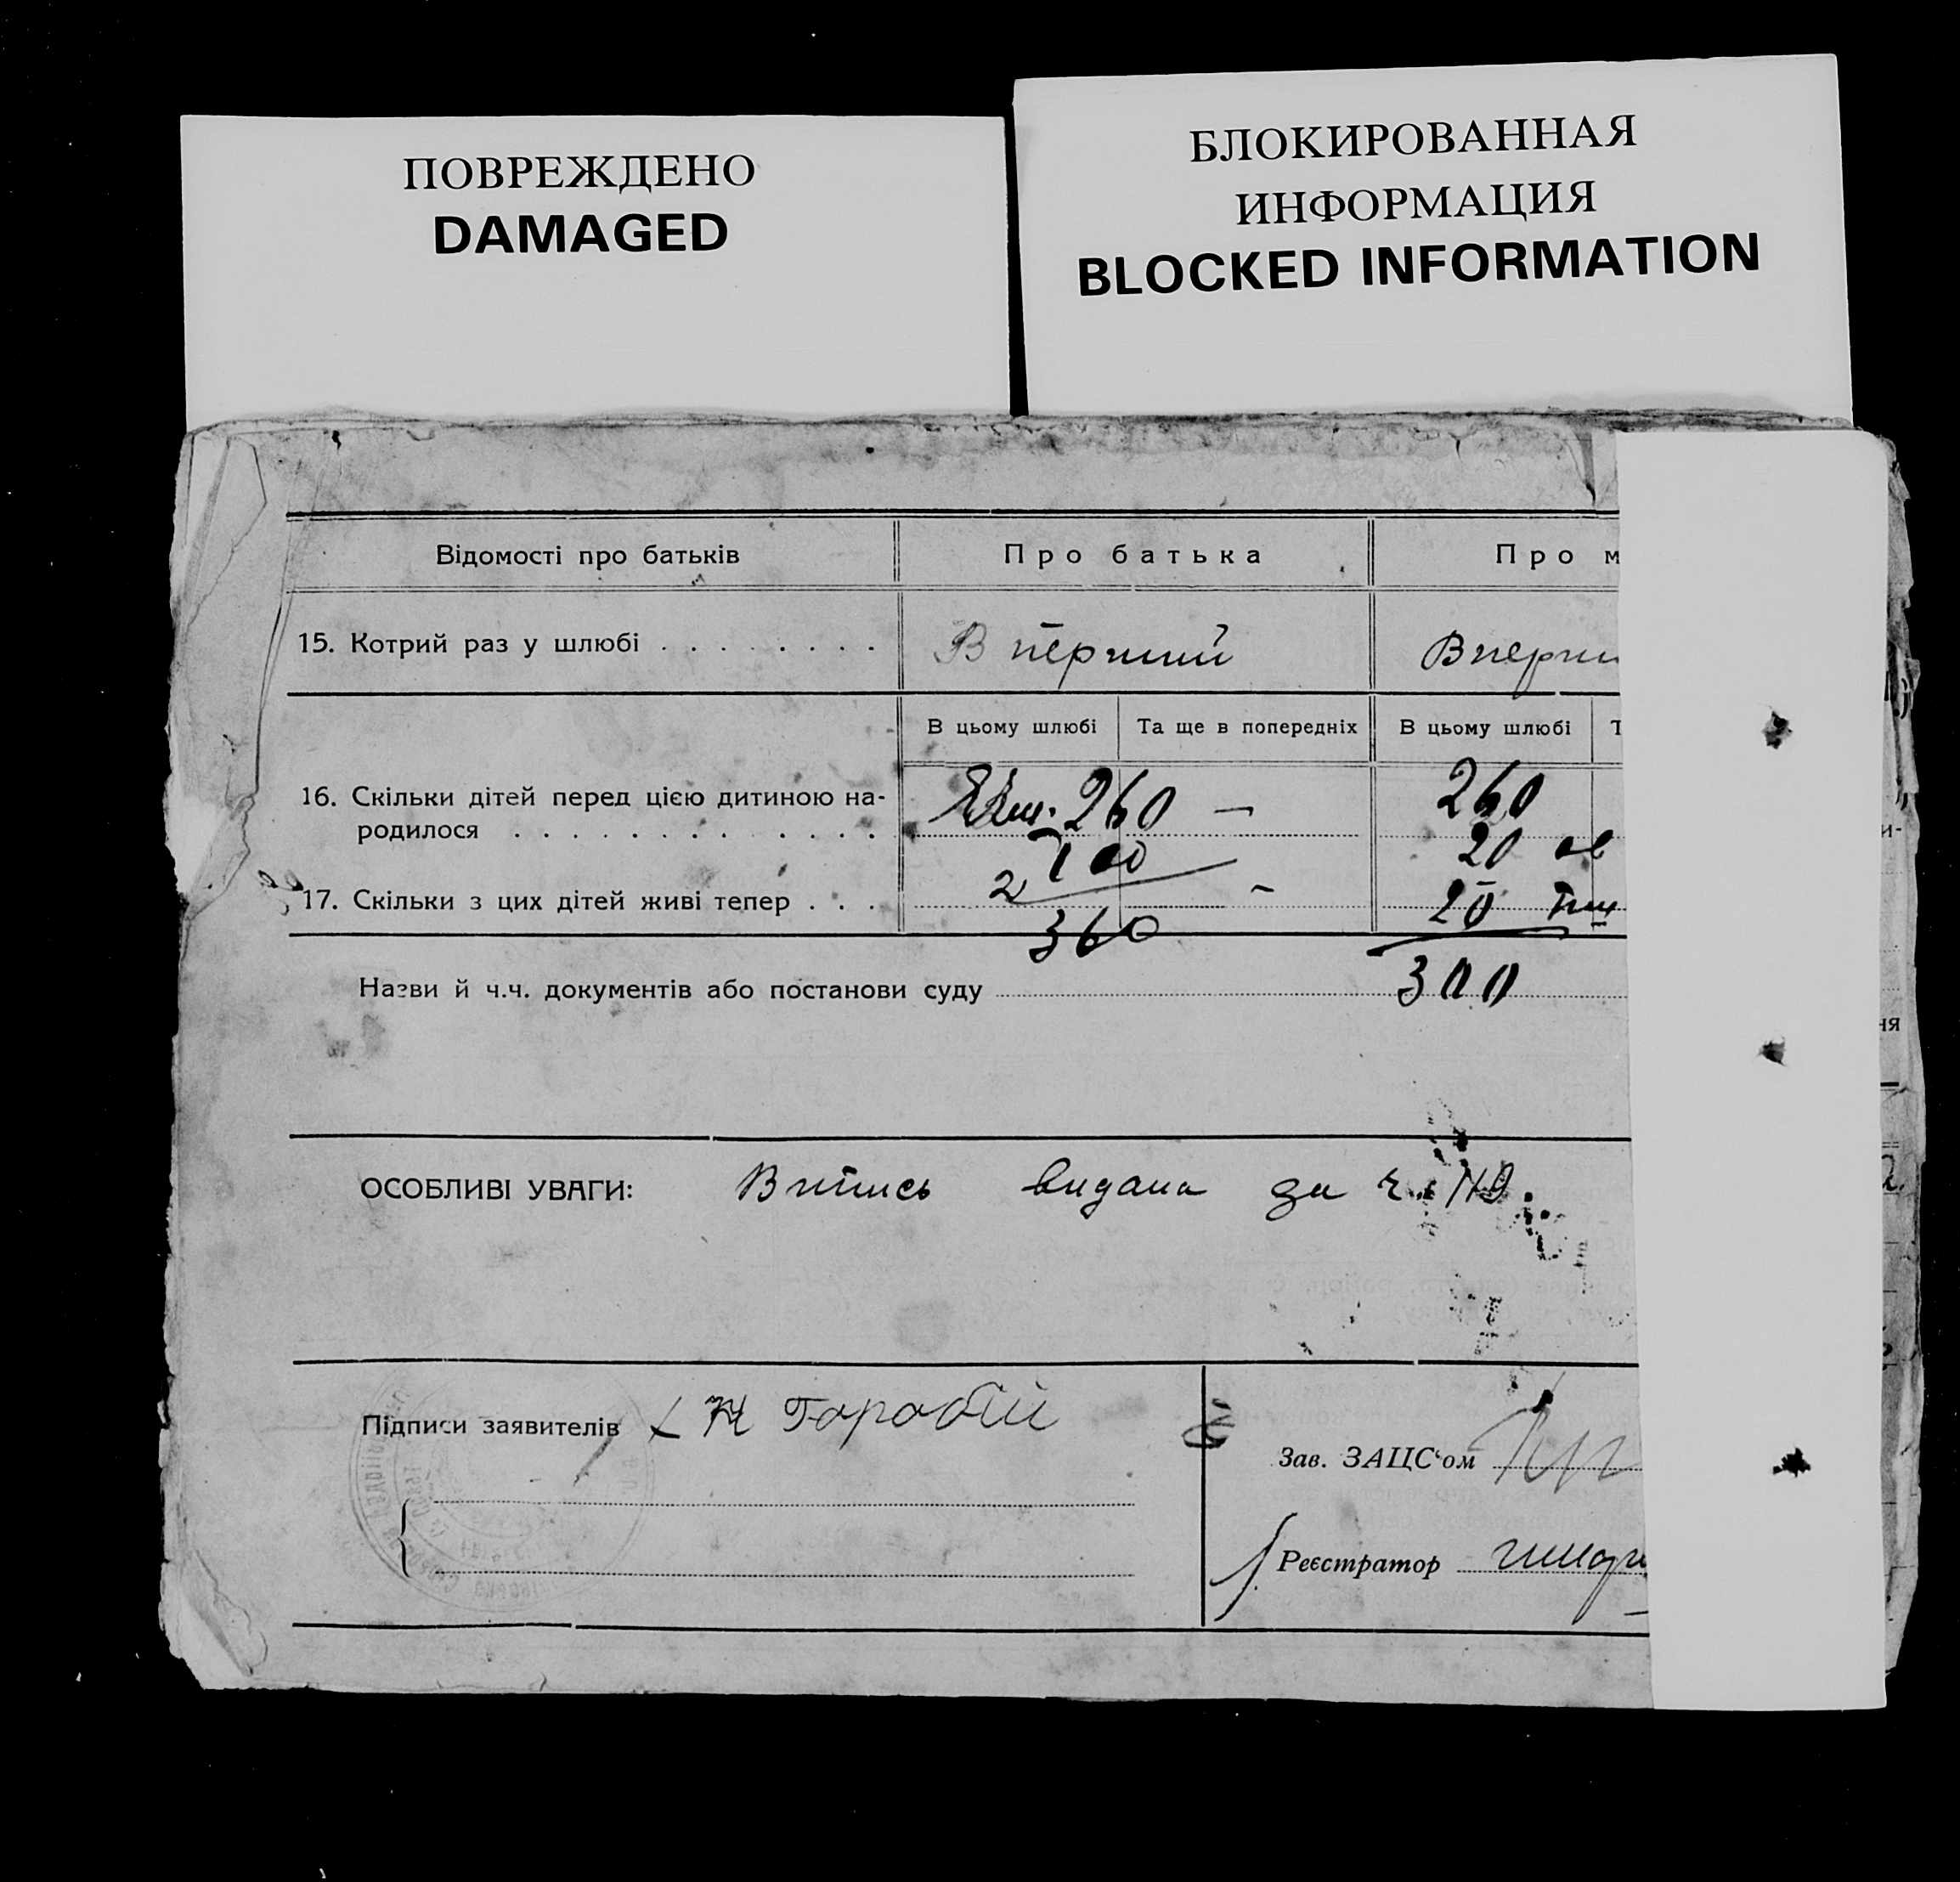 ПОВРЕЖДЕНО
DAMAGED
БЛОКИРОВАННАЯ
ИНФОРМАЦИЯ
BLOCKED INFORMATION
Відомості про батьків Про батька Про м
15. Котрий раз у шлюбі . . . . . . . . В перший Вперш
В цьому шлюбі Та ще в попередніх В цьому шлюбі Т
16. Скільки дітей перед цією дитиною на- 260 — 260
родилося . . . . . . . . . . . . . 100 20
17. Скільки з цих дітей живі тепер . . . 2 - 20
360
Назви й ч.ч. документів або постанови суду 300
ОСОБЛИВІ УВАГИ: Витись видана за ч.
Підписи заявителів Горобій
Зав. ЗАЦС'ом
Реєстратор
и-
ня